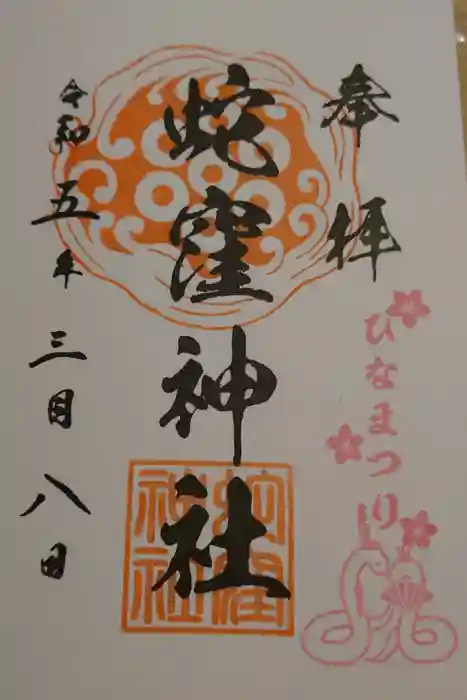 奉拝
ひなまつり
蛇窪神社
蛇窪神社
令和五年三月八日